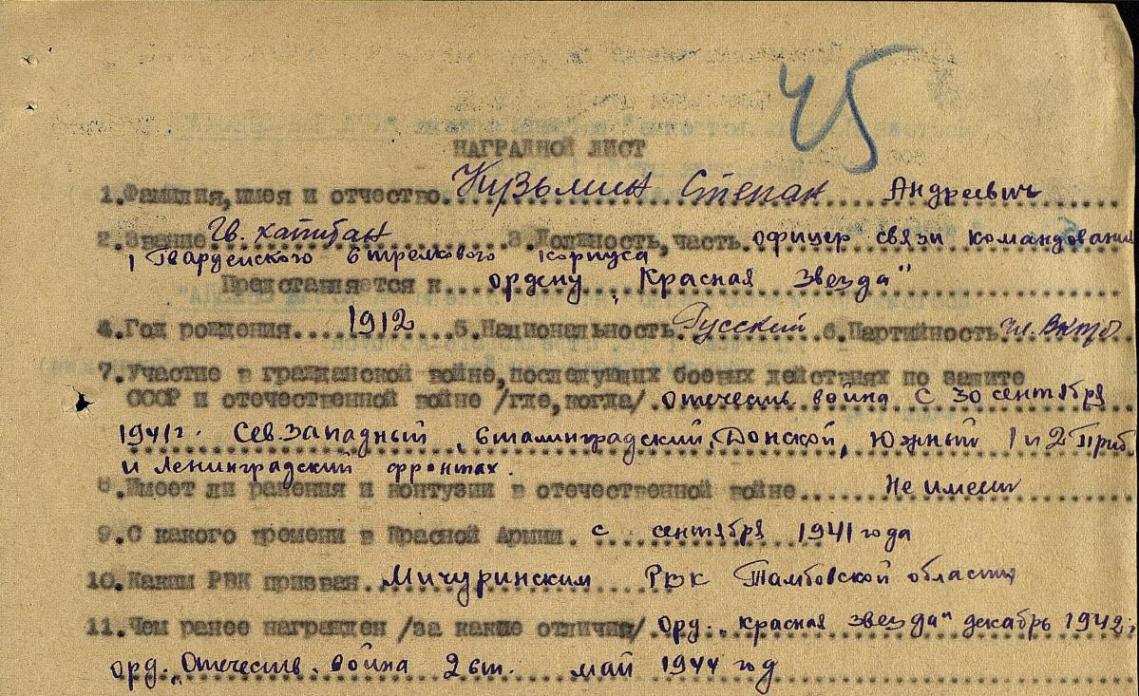 45
НАГРАДНОЙ ЛИСТ
1. Фамилия, имея и отчество. Кузьмин Степан Андреевич
2. Звание Гв. капитан 3. Должность, часть офицер связи командования
1 Гвардейского Стрелкового корпуса
Представляется к ордену „Красная Звезда"
4. Год рождения.... 1912 ... 5. Национальность Русский 6. Партийность чл. ВКП/б/
7. Участие в гражданской войне, последующих боевых действиях по защите
СССР и отечественной войне /где, когда/ Отечеств война с 30 сентября
1941г. Сев. Западный, Сталинградский, Донской, Южный 1 и 2 Приб.
и Ленинградский фронтах.
8. Имеет ли ранения и контузии в отечественной войне....... Не имеет
9. С какого времени в Красной Армии. с сентября 1941 года
10. Каким РВК призван. Мичуринским РВК Тамбовской области
11. Чем ранее награжден /за какие отличия/ орд. „Красная звезда" декабрь 1942г,
орд. „Отечеств. война 2 ст. май 1944 год